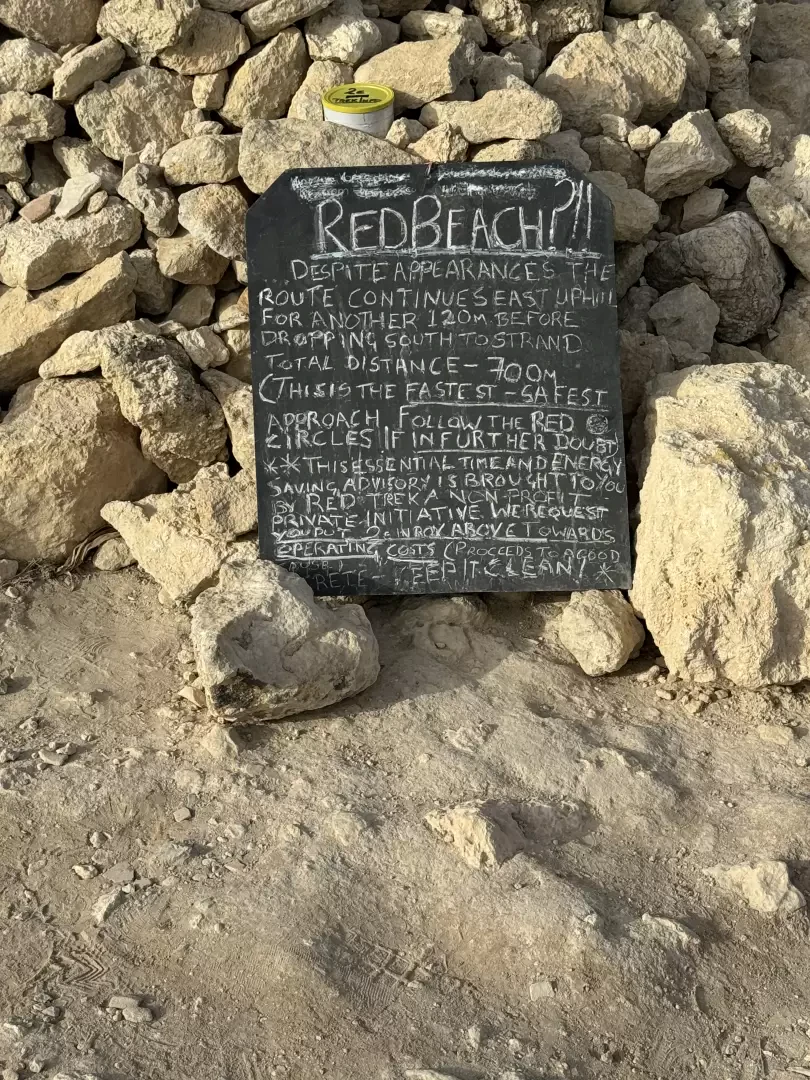 2€
TREK INFO
RED BEACH?!!
DESPITE APPEARANCES THE
ROUTE CONTINUES EAST UPHILL
FOR ANOTHER 120M BEFORE
DROPPING SOUTH TO STRAND
TOTAL DISTANCE - 700M
(THIS IS THE FASTEST - SAFEST
APPROACH FOLLOW THE RED
CIRCLES IF IN FURTHER DOUBT
** THIS ESSENTIAL TIME AND ENERGY
SAVING ADVISORY IS BROUGHT TO YOU
BY RED TREK A NON-PROFIT
PRIVATE INITIATIVE WE REQUEST
YOU PUT 2€ IN BOX ABOVE TOWARDS
OPERATING COSTS (PROCEEDS TO A GOOD
CRETE - KEEP IT CLEAN! *